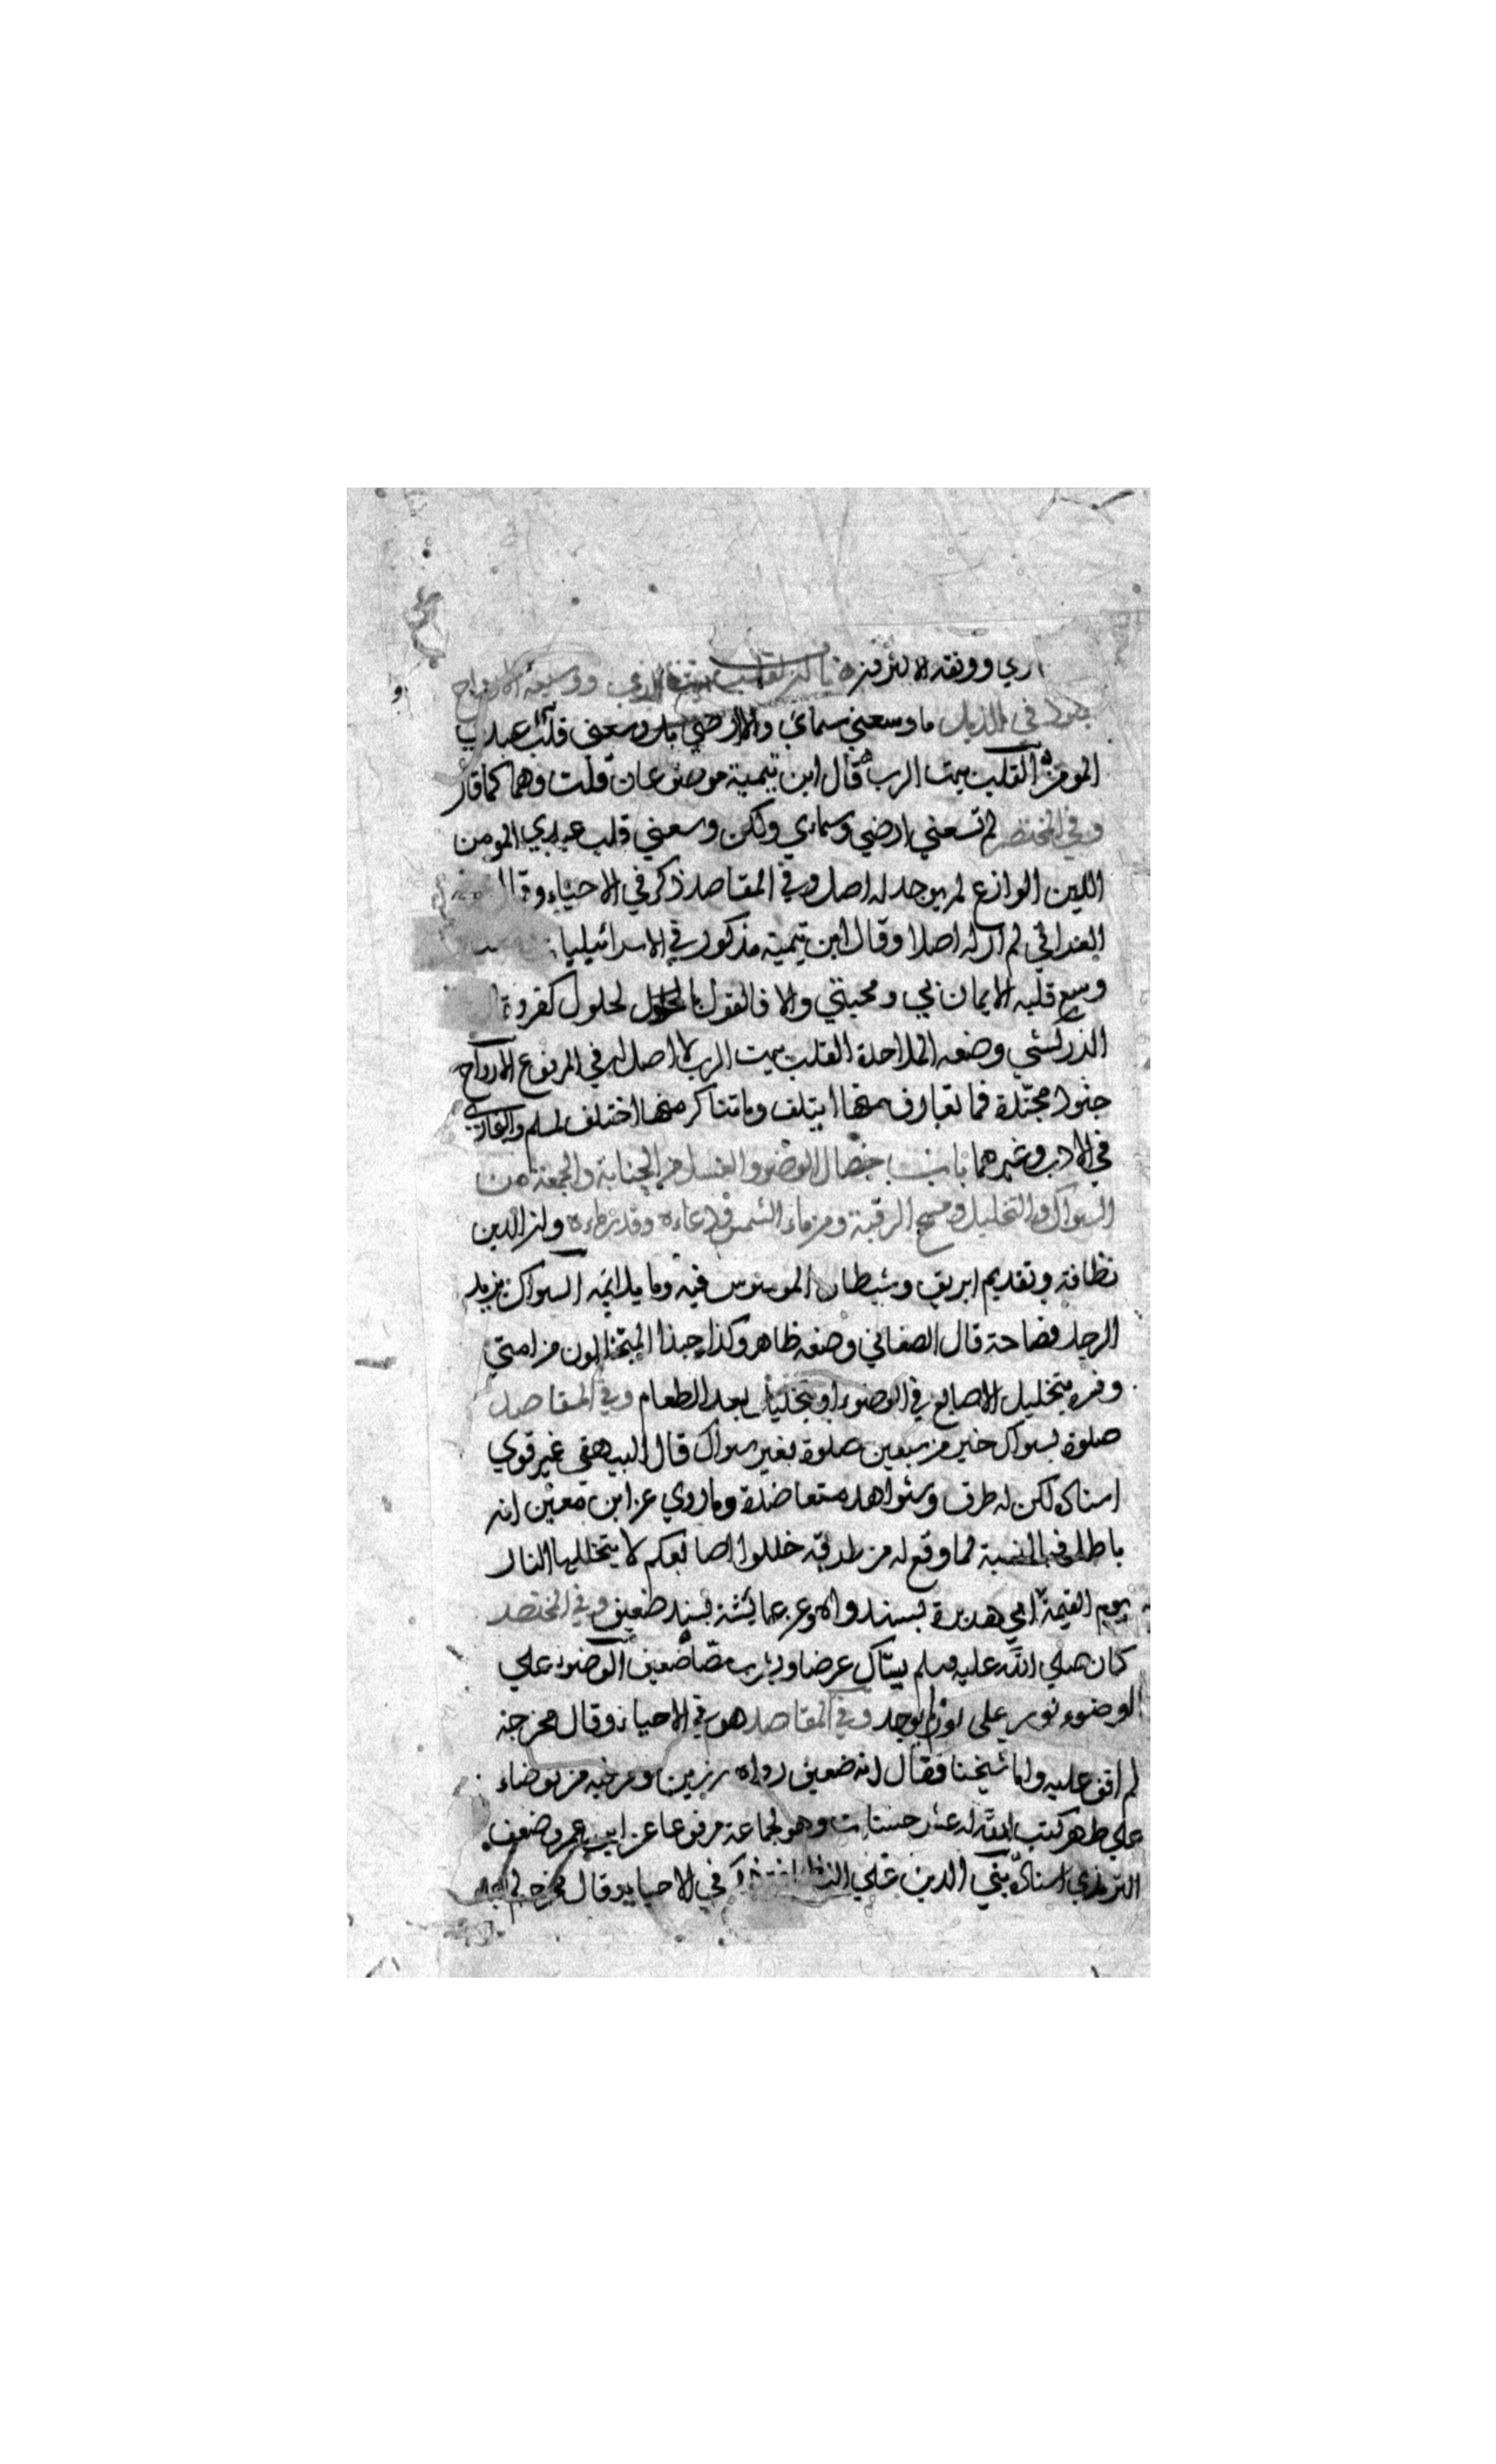 اري ووثقه الاكثرون باب ان القلب بيت الرب ووسعه الارواح
في الذيل ما وسعني سمائي ولا ارضي بل وسعني قلب عبدي
المومن القلب بيت الرب قال ابن تيمية موضوعان قلت وهما كما قال
وفي المختصر لم تسعني ارضي وسمائي ولكن وسعني قلب عبدي المومن
اللين الوازع لم يوجد له اصل وفي المقاصد ذكر في الاحياء وقال
العراقي لم ار له اصلا وقال ابن تيمية مذكور في الاسرائيليات
وسع قلبه الايمان بي ومحبتي والا فالقول بالحلول كفر وقال
الزركشي وضعه الملاحدة القلب بيت الرب لا اصل له في المرفوع الارواح
جنود مجندة فما تعارف منها ايتلف وما تناكر منها اختلف لمسلم والبخاري
في الادب وغيرهما باب خصال الوضوء والغسل من الجنابة والجمعة من
السواك والتخليل ومسح الرقبة ومن ماء الشمس ودعاءه وقدر ماءه وان الدين
نظافة وتقديم ابريق وشيطان الموسوس فيه وما يلائمه السواك يزيد
الرجل فصاحة قال الصغاني وضعه ظاهر وكذا حبذا المتخللون من امتي
وفسره بتخليل الاصابع في الوضوء او بتخليل بعد الطعام وفي المقاصد
صلوة بسواك خير من سبعين صلوة بغير سواك قال البيهقي غير قوي
اسناده لكن له طرق وشواهد متعاضدة وما روي عن ابن معين انه
باطل فبالنسبة لما وقع له من طرقه خللوا اصابعكم لا يتخللها النار
يوم القيمة ابي هريرة بسند واه وعن عائشة بسند ضعيف وفي المختصر
كان صلى الله عليه وسلم يستاك عرضا ويشرب مصا ضعيف الوضوء علي
الوضوء نور على نور لم يوجد وفي المقاصد هو في الاحياء وقال مخرجه
لم اقف عليه واما شيخنا فقال انه ضعيف رواه رزين ومن فيه من توضاء
علي طهر كتب الله له عشر حسنات وهو لجماعة مرفوعا عن ابن عمر وضعف
الترمذي اسناده بني الدين علي النظافة في الاحياء وقال مخرجه لم اجده